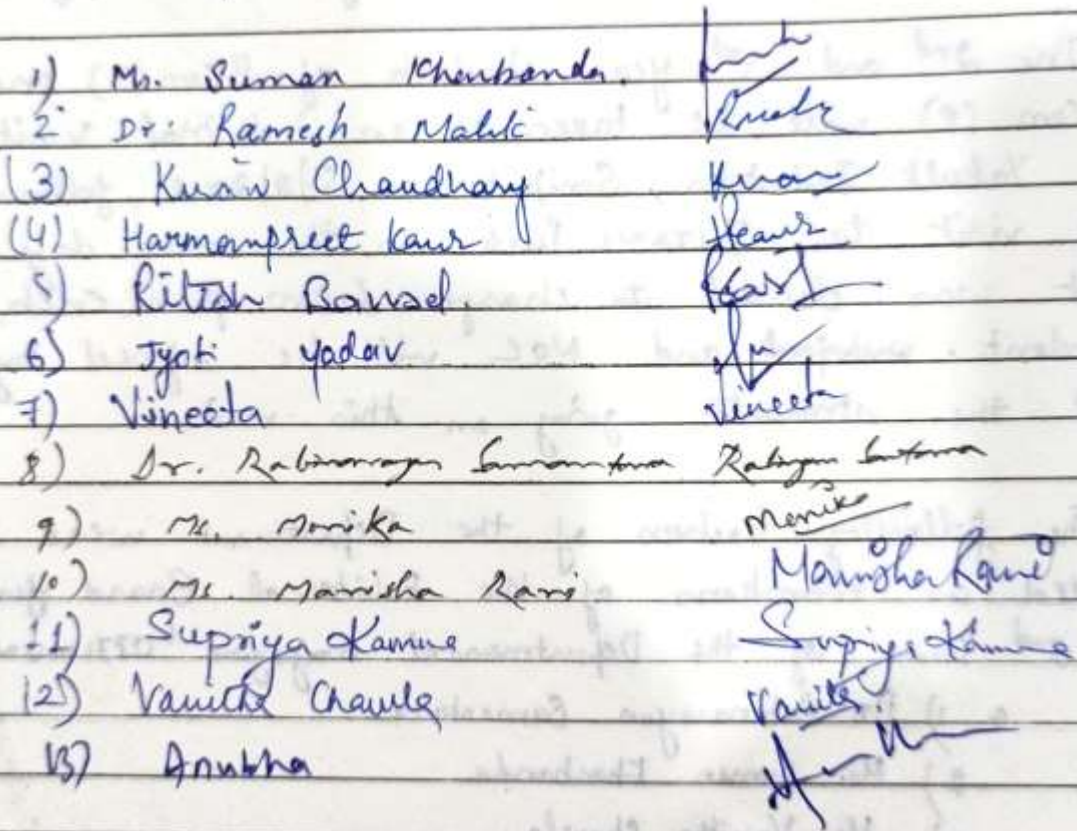 1) Ms. Suman Kharbanda.
2 Dr. Ramesh Malik
(3) Kiran Chaudhary Kiran
(4) Harmanpreet Kaur HKaur
5) Ritish Bansal.
6) Jyoti yadav
7) Vineeta Vineeta
8) Dr. Rabinarayan Samantara
9) Ms. Monika Monika
10) Ms. Manisha Rani Manisha Rani
11) Supriya Kamna Supriya Kamna
12) Vanitha Chawla Vanita
13) Anubha